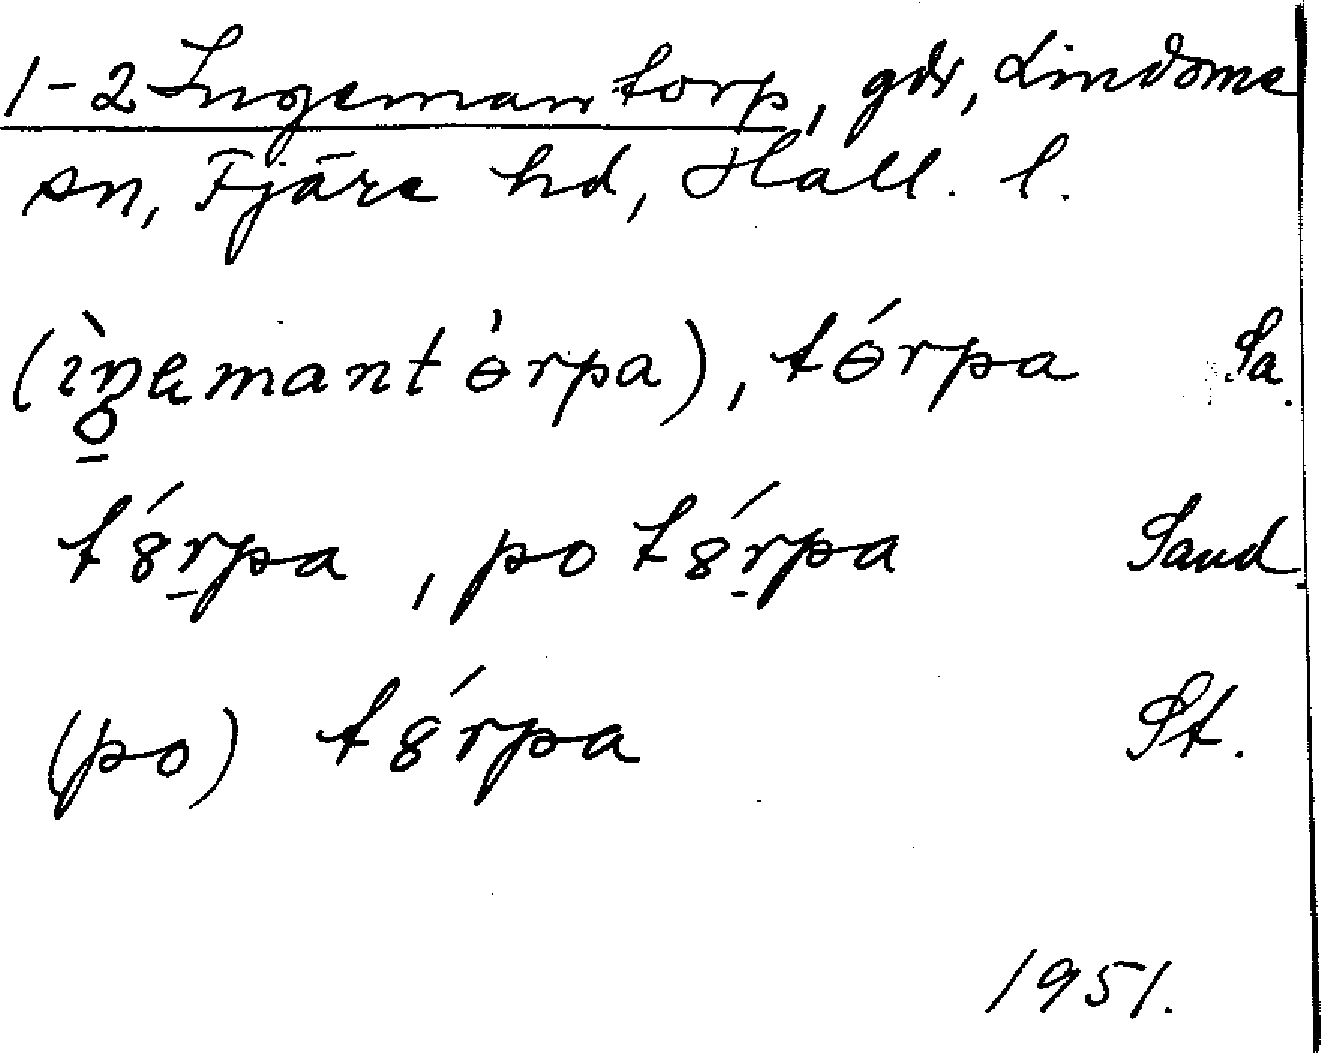 1-2 Ingemantorp, gdr, Lindome
sn, Fjäre hd, Hall. l.
(ìŋemantɵ̀rpa), tɵ́rpa Sa.
tȣ́rpa, po tȣ́rpa Sand.
(po) tȣ́rpa St.
1951.